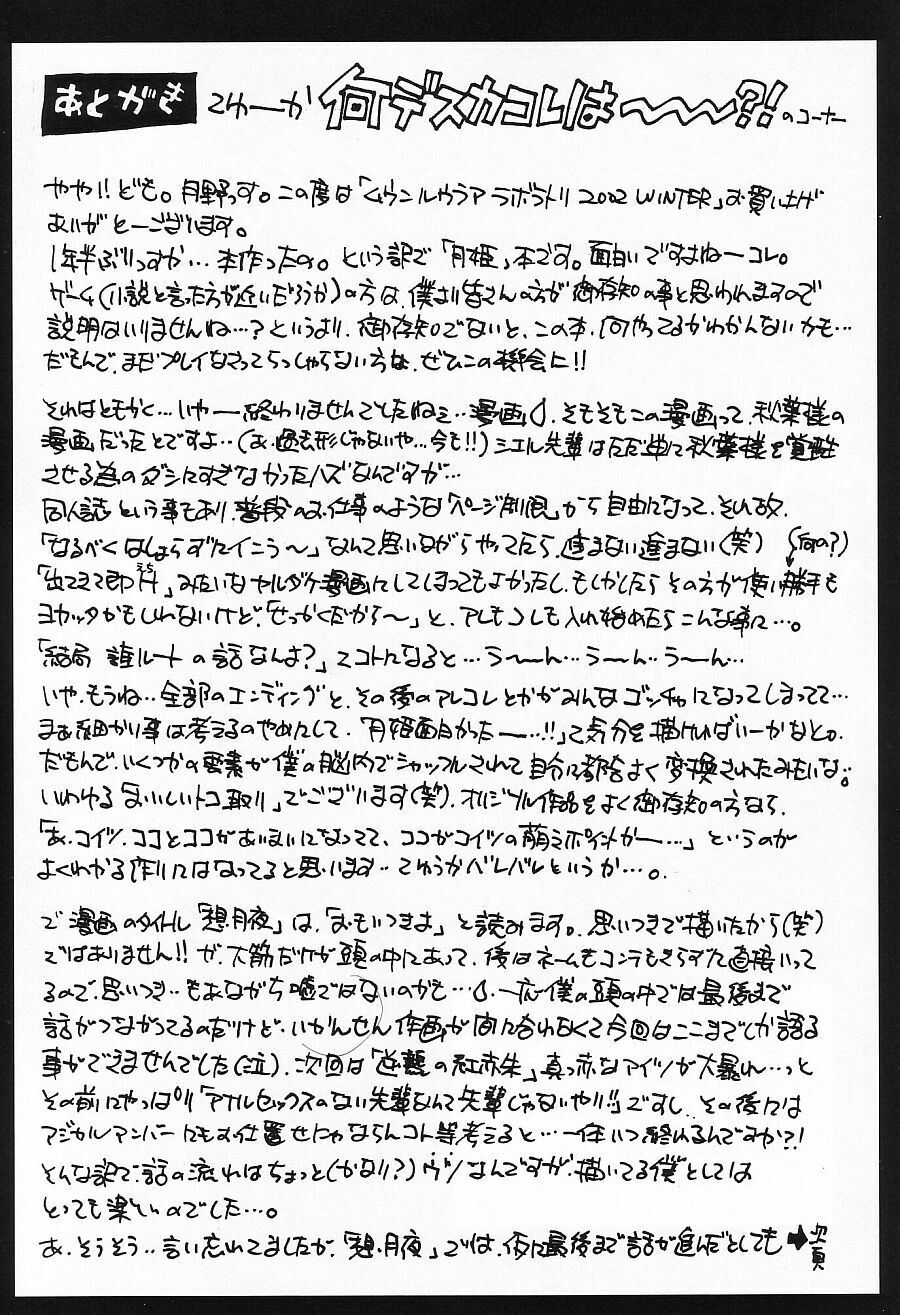 あとがき てゆーか 何デスカコレは〜〜〜?!のコーナー
やや!!ども。月野っす。この度は「ムウンルウラア ラボラトリ 2002 WINTER」お買い上げ
ありがとーございます。
1年半ぶりっすか…本作ったの。という訳で「月姫」本です。面白いですよねーコレ。
ゲーム(小説と言った方が近いだろうか)の方は、僕より皆さんの方が御存知の事と思われますので
説明はいりませんね…?というより、御存知でないと、この本、何やってるかわかんないかも…
だもんで、まだプレイなさってらっしゃらない方は、ぜひこの機会に!!
それはともかく…いやー終わりませんでしたねェ…漫画。そもそもこの漫画って、秋葉様の
漫画だったとですよ…(あ、過去形じゃないや…今も!!)シエル先輩はただ単に秋葉様を覚醒
させる為のダシにすぎなかったハズなんですが…
同人誌という事もあり、普段のお仕事のような「ページ制限」から自由になって、それ故、
「なるべくはしょらずにイこう〜」なんて思いながらやってたら、進まない進まない(笑) (何の?)
「出てきて即」みたいなヤルダケ漫画にしてしまってもよかったし、もしかしたらその方が使い勝手も
ヨカッタかもしれないけど、「せっかくだから〜」と、アレもコレも入れ始めたらこんな事に…。
「結局 誰ルートの話なんよ?」てコトになると…う〜〜ん…う〜ん…う〜ん…
いや、もうね…全部のエンディングと、その後のアレコレとかがみんなゴッチャになってしまってて…
まぁ細かい事は考えるのやめにして、「月姫面白かったー…!!」て気分を描ければいーかなとか。
だもんで、いくつかの要素が僕の脳内でシャッフルされて自分に都合よく変換されたみたいな。
いわゆる「おいしいトコ取り」でございます(笑)。オリジナル作品をよく御存知の方なら、
「あ、コイツ、ココとココがあいまいになってて、ココがコイツの萌えポイントかー…」というのが
よくわかる作りにはなってると思います…てゆうかバレバレというか…。
で 漫画のタイトル「想月夜」は、「おもいつきよ」と読みます。思いつきで描いたから(笑)
ではありません!!が、大筋だけが頭の中にあって、後はネームもコンテもきらずに直接いって
るので、思いつき…もあながち嘘ではないのかも…。一応僕の頭の中では最後まで
話がつながってるのだけど、いかんせん作画が間に合わなくて今回はここまでしか語る
事ができませんでした(泣)。次回は「逆襲の紅赤朱」真っ赤なアイツが大暴れ…っと
その前にやっぱり「アナルセックスのない先輩なんて先輩じゃないやい!!」ですし、その後には
マジカルアンバーにもお仕置せにゃならんコト等考えると…一体いつ終れるんですか?!
そんな訳で、話の流れはちょっと(かなり?)ウツなんですが、描いてる僕としては
とっても楽しいのでした…。
あ、そうそう…言い忘れてましたが、「想月夜」では、仮に最後まで話が進んだとしても➡次頁